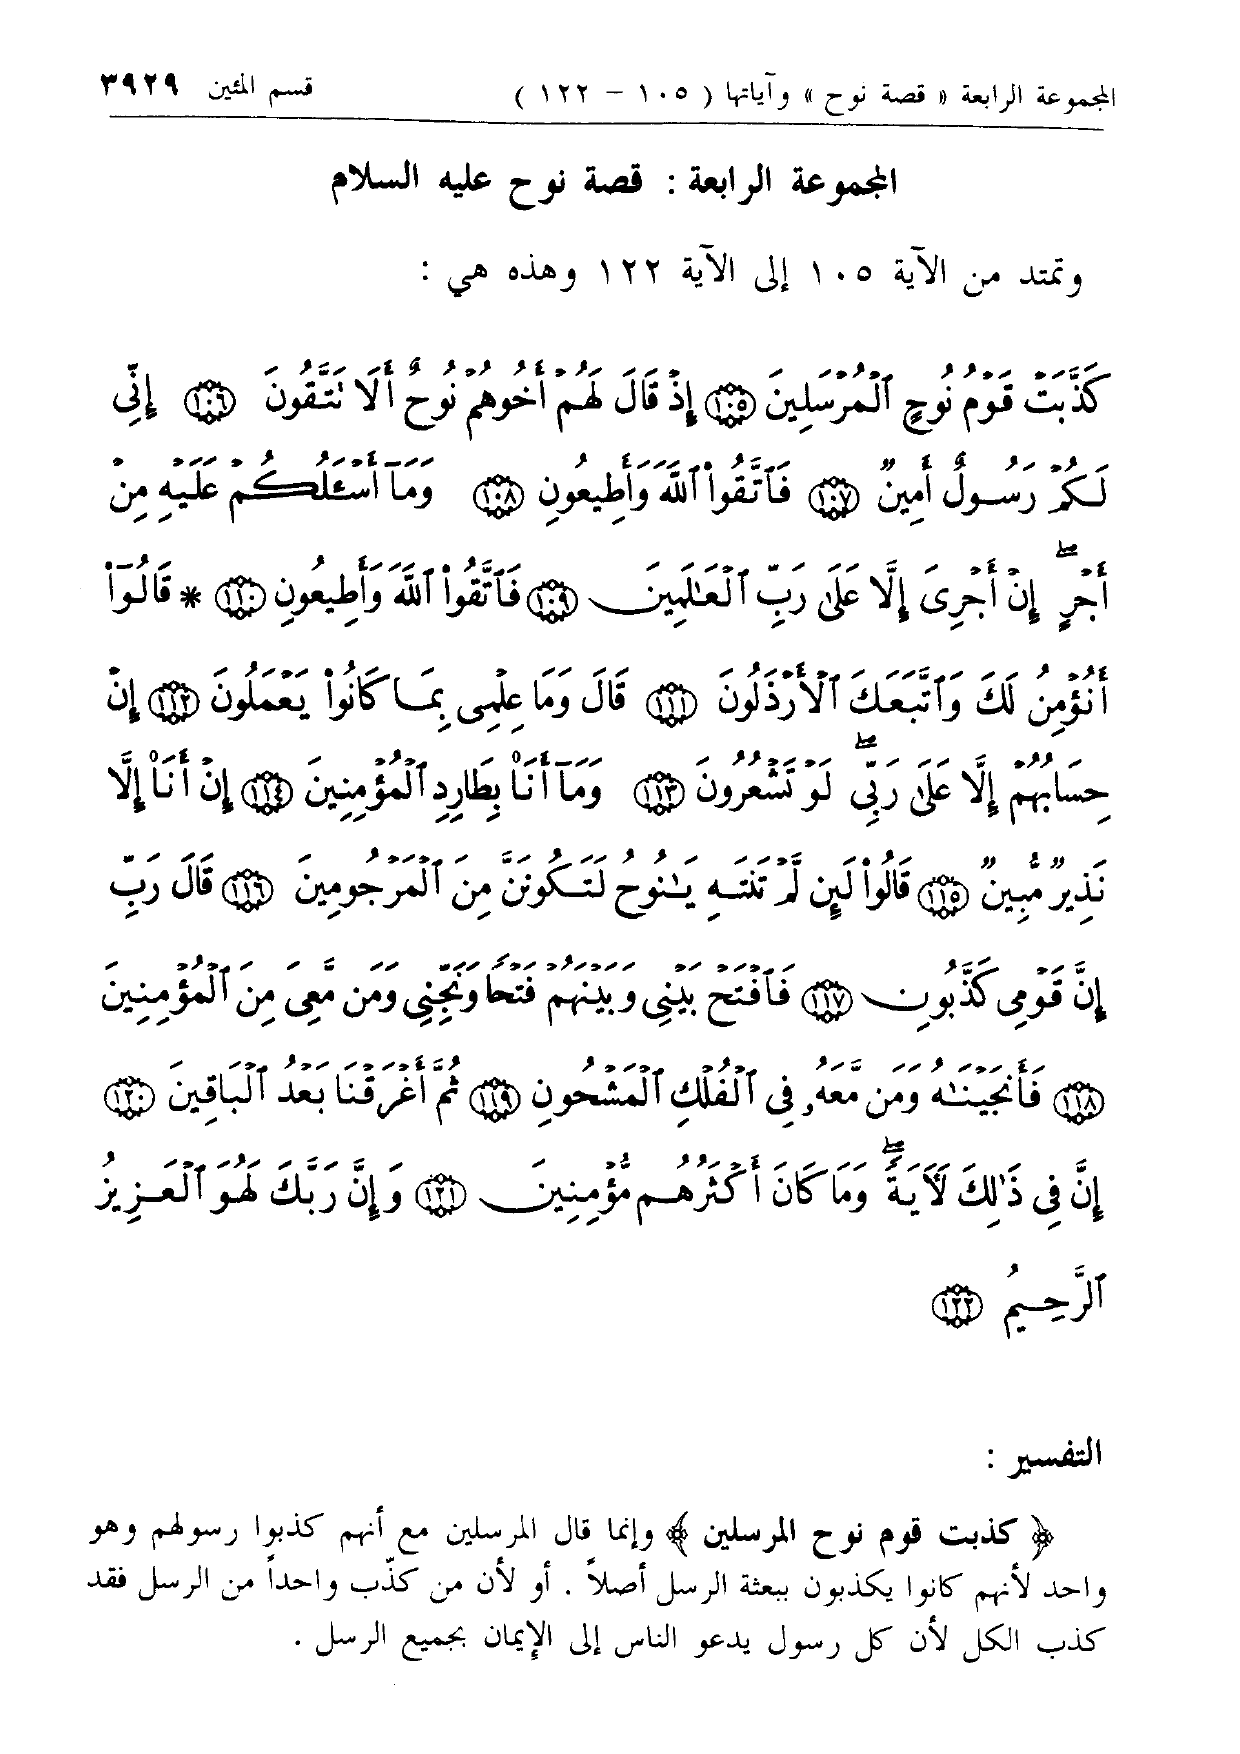 المجموعة الرابعة « قصة نوح » وآياتها ( ١٠٥ – ١٢٢ ) قسم المئين ٣٩٢٩
المجموعة الرابعة : قصة نوح عليه السلام
وتمتد من الآية ١٠٥ إلى الآية ١٢٢ وهذه هي :
كَذَّبَتْ قَوْمُ نُوحٍ ٱلْمُرْسَلِينَ ١٠٥ إِذْ قَالَ لَهُمْ أَخُوهُمْ نُوحٌ أَلَا تَتَّقُونَ ١٠٦ إِنِّى
لَكُمْ رَسُولٌ أَمِينٌ ١٠٧ فَٱتَّقُوا۟ ٱللَّهَ وَأَطِيعُونِ ١٠٨ وَمَآ أَسْـَٔلُكُمْ عَلَيْهِ مِنْ
أَجْرٍۖ إِنْ أَجْرِىَ إِلَّا عَلَىٰ رَبِّ ٱلْعَـٰلَمِينَ ١٠٩ فَٱتَّقُوا۟ ٱللَّهَ وَأَطِيعُونِ ١١٠ * قَالُوٓا۟
أَنُؤْمِنُ لَكَ وَٱتَّبَعَكَ ٱلْأَرْذَلُونَ ١١١ قَالَ وَمَا عِلْمِى بِمَا كَانُوا۟ يَعْمَلُونَ ١١٢ إِنْ
حِسَابُهُمْ إِلَّا عَلَىٰ رَبِّىۖ لَوْ تَشْعُرُونَ ١١٣ وَمَآ أَنَا۠ بِطَارِدِ ٱلْمُؤْمِنِينَ ١١٤ إِنْ أَنَا۠ إِلَّا
نَذِيرٌ مُّبِينٌ ١١٥ قَالُوا۟ لَئِن لَّمْ تَنتَهِ يَـٰنُوحُ لَتَكُونَنَّ مِنَ ٱلْمَرْجُومِينَ ١١٦ قَالَ رَبِّ
إِنَّ قَوْمِى كَذَّبُونِ ١١٧ فَٱفْتَحْ بَيْنِى وَبَيْنَهُمْ فَتْحًا وَنَجِّنِى وَمَن مَّعِىَ مِنَ ٱلْمُؤْمِنِينَ
١١٨ فَأَنجَيْنَـٰهُ وَمَن مَّعَهُۥ فِى ٱلْفُلْكِ ٱلْمَشْحُونِ ١١٩ ثُمَّ أَغْرَقْنَا بَعْدُ ٱلْبَاقِينَ ١٢٠
إِنَّ فِى ذَٰلِكَ لَـَٔايَةًۖ وَمَا كَانَ أَكْثَرُهُم مُّؤْمِنِينَ ١٢١ وَإِنَّ رَبَّكَ لَهُوَ ٱلْعَزِيزُ
ٱلرَّحِيمُ ١٢٢
التفسير :
﴿ كذبت قوم نوح المرسلين ﴾ وإنما قال المرسلين مع أنهم كذبوا رسولهم وهو
واحد لأنهم كانوا يكذبون ببعثة الرسل أصلاً . أو لأن من كذّب واحداً من الرسل فقد
كذب الكل لأن كل رسول يدعو الناس إلى الإيمان بجميع الرسل .